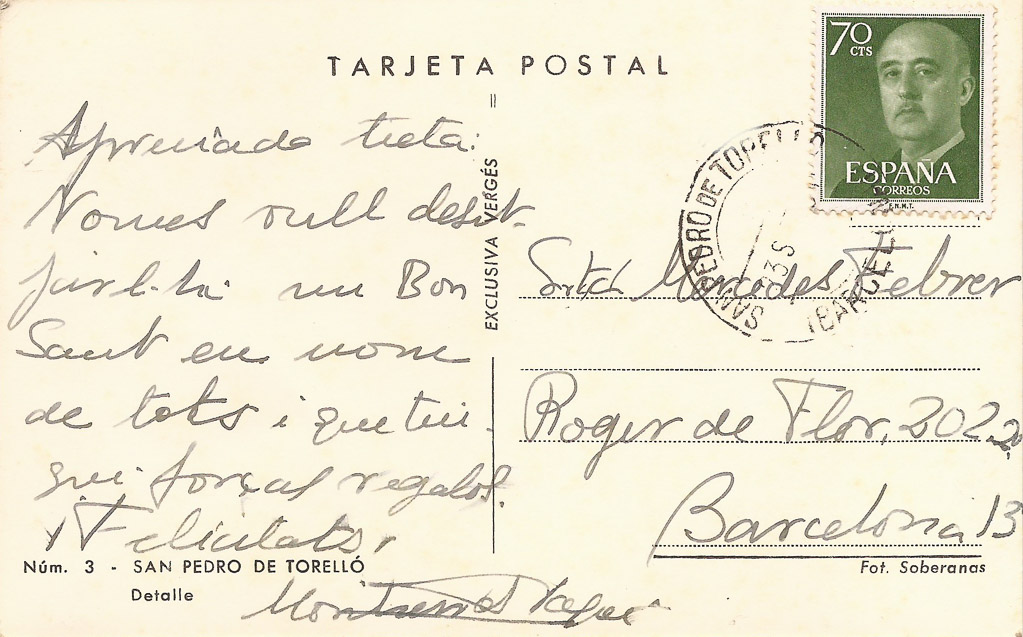 TARJETA POSTAL
70 CTS
ESPAÑA
CORREOS
F.N.M.T.
SAN PEDRO DE TORELLO
(BARCELONA)
Apreciada tieta:
Nomes vull desit-
jarl-ta un Bon
Sant en nom
de tots i que tin-
gui forças regalos.
¡Felicitats,
Montserrat
EXCLUSIVA VERGÉS
Srta Mercedes Febrer
Roger de Flor, 202 2º
Barcelona 13
Núm. 3 - SAN PEDRO DE TORELLÓ
Detalle
Fot. Soberanas